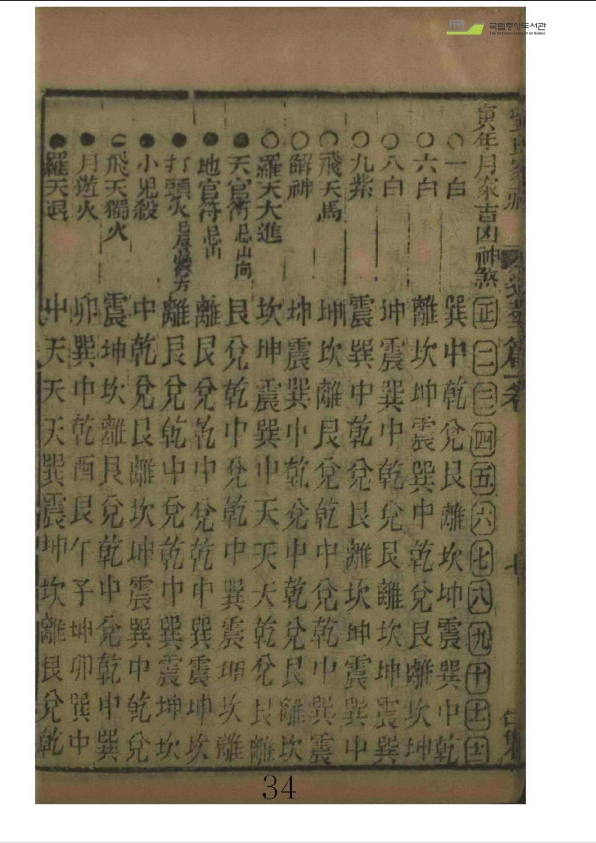 국립중앙도서관
The National Library of Korea
仁集
寅年月家吉凶神煞 正 二 三 四 五 六 七 八 九 十 十一 十二
○一白 巽中乾兌艮離坎坤震巽中乾
○六白 離坎坤震巽中乾兌艮離坎坤
○八白 坤震巽中乾兌艮離坎坤震巽
○九紫 震巽中乾兌艮離坎坤震巽中
○飛天馬 坤坎離艮兌乾中兌乾中巽震
○解神 坤震巽中乾兌中乾兌艮離坎
○羅天大進 坎坤震巽中天天天乾兌艮離
●天官符忌山向 艮兌乾中兌乾中巽震坤坎離
●地官符忌山 離艮兌乾中兌乾中巽震坤坎
●打頭火忌方 離艮兌乾中兌乾中巽震坤坎
●小兒殺 中乾兌艮離坎坤震巽中乾兌
●飛天獨火 震坤坎離艮兌乾中兌乾中巽
●月遊火 卯巽中乾酉艮午子坤卯巽中
●羅天退 中天天天巽震坤坎離艮兌乾
34